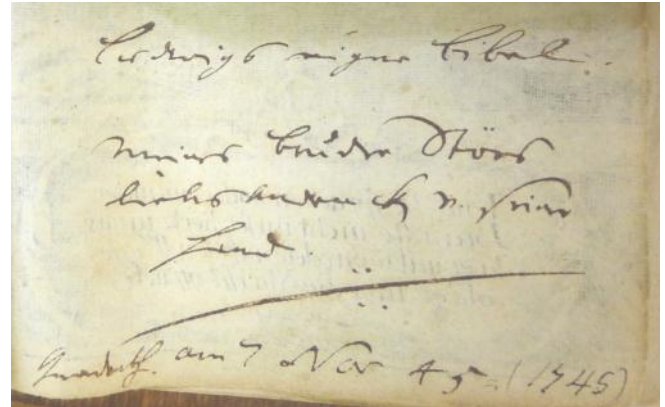 Ludwigs eigne Bibel.
meines Bruders Störs
liebs Andenken v. seiner
Hand
am 7 Nov 45 = (1745)